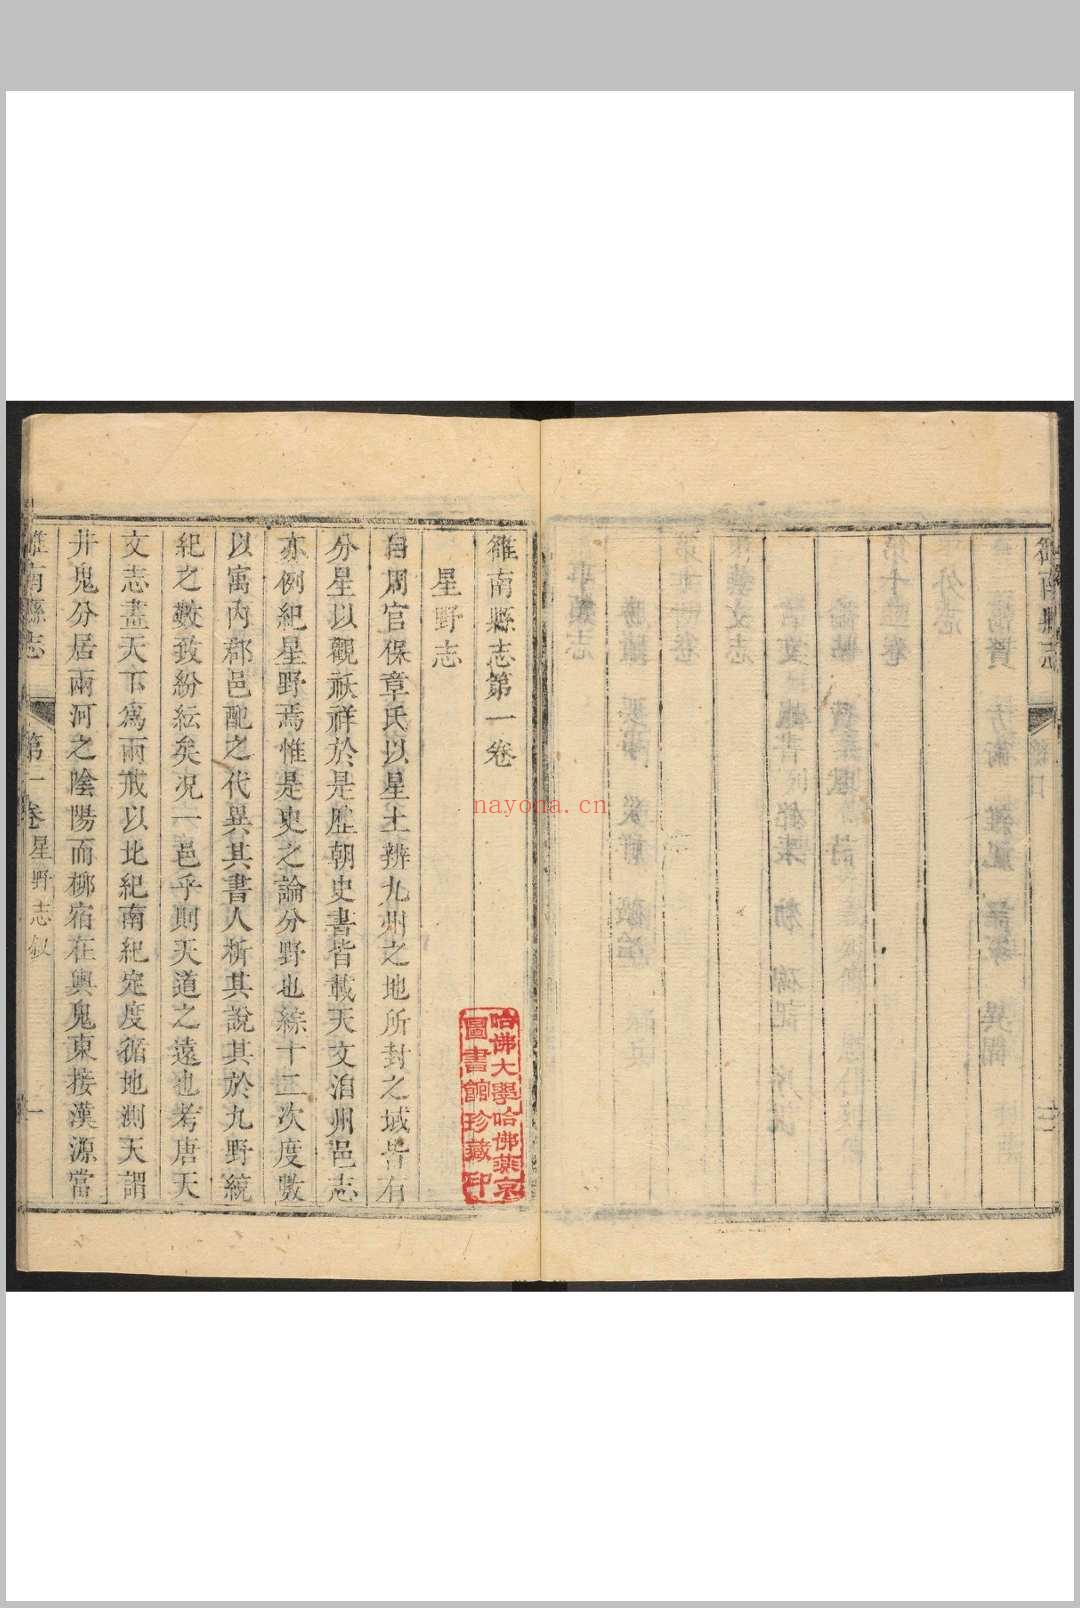 雒南縣志
雒南縣志第一卷
星野志
自周官保章氏以星土辨九州之地所封之域皆有
分星以觀祅祥於是歷朝史書皆載天文洎州邑志
亦例紀星野焉惟是史之論分野也綜十二次度數
以寓内郡邑配之代異其書人析其說其於九野統
紀之數致紛紜矣况一邑乎則天道之遠也考唐天
文志畫天下爲兩戒以北紀南紀定度循地測天謂
井鬼分居兩河之陰陽而柳宿在輿鬼東接漢源當
雒南縣志
第一卷
星野志叙
一
哈佛大學哈佛燕京
圖書館珍藏印
nayona.cn